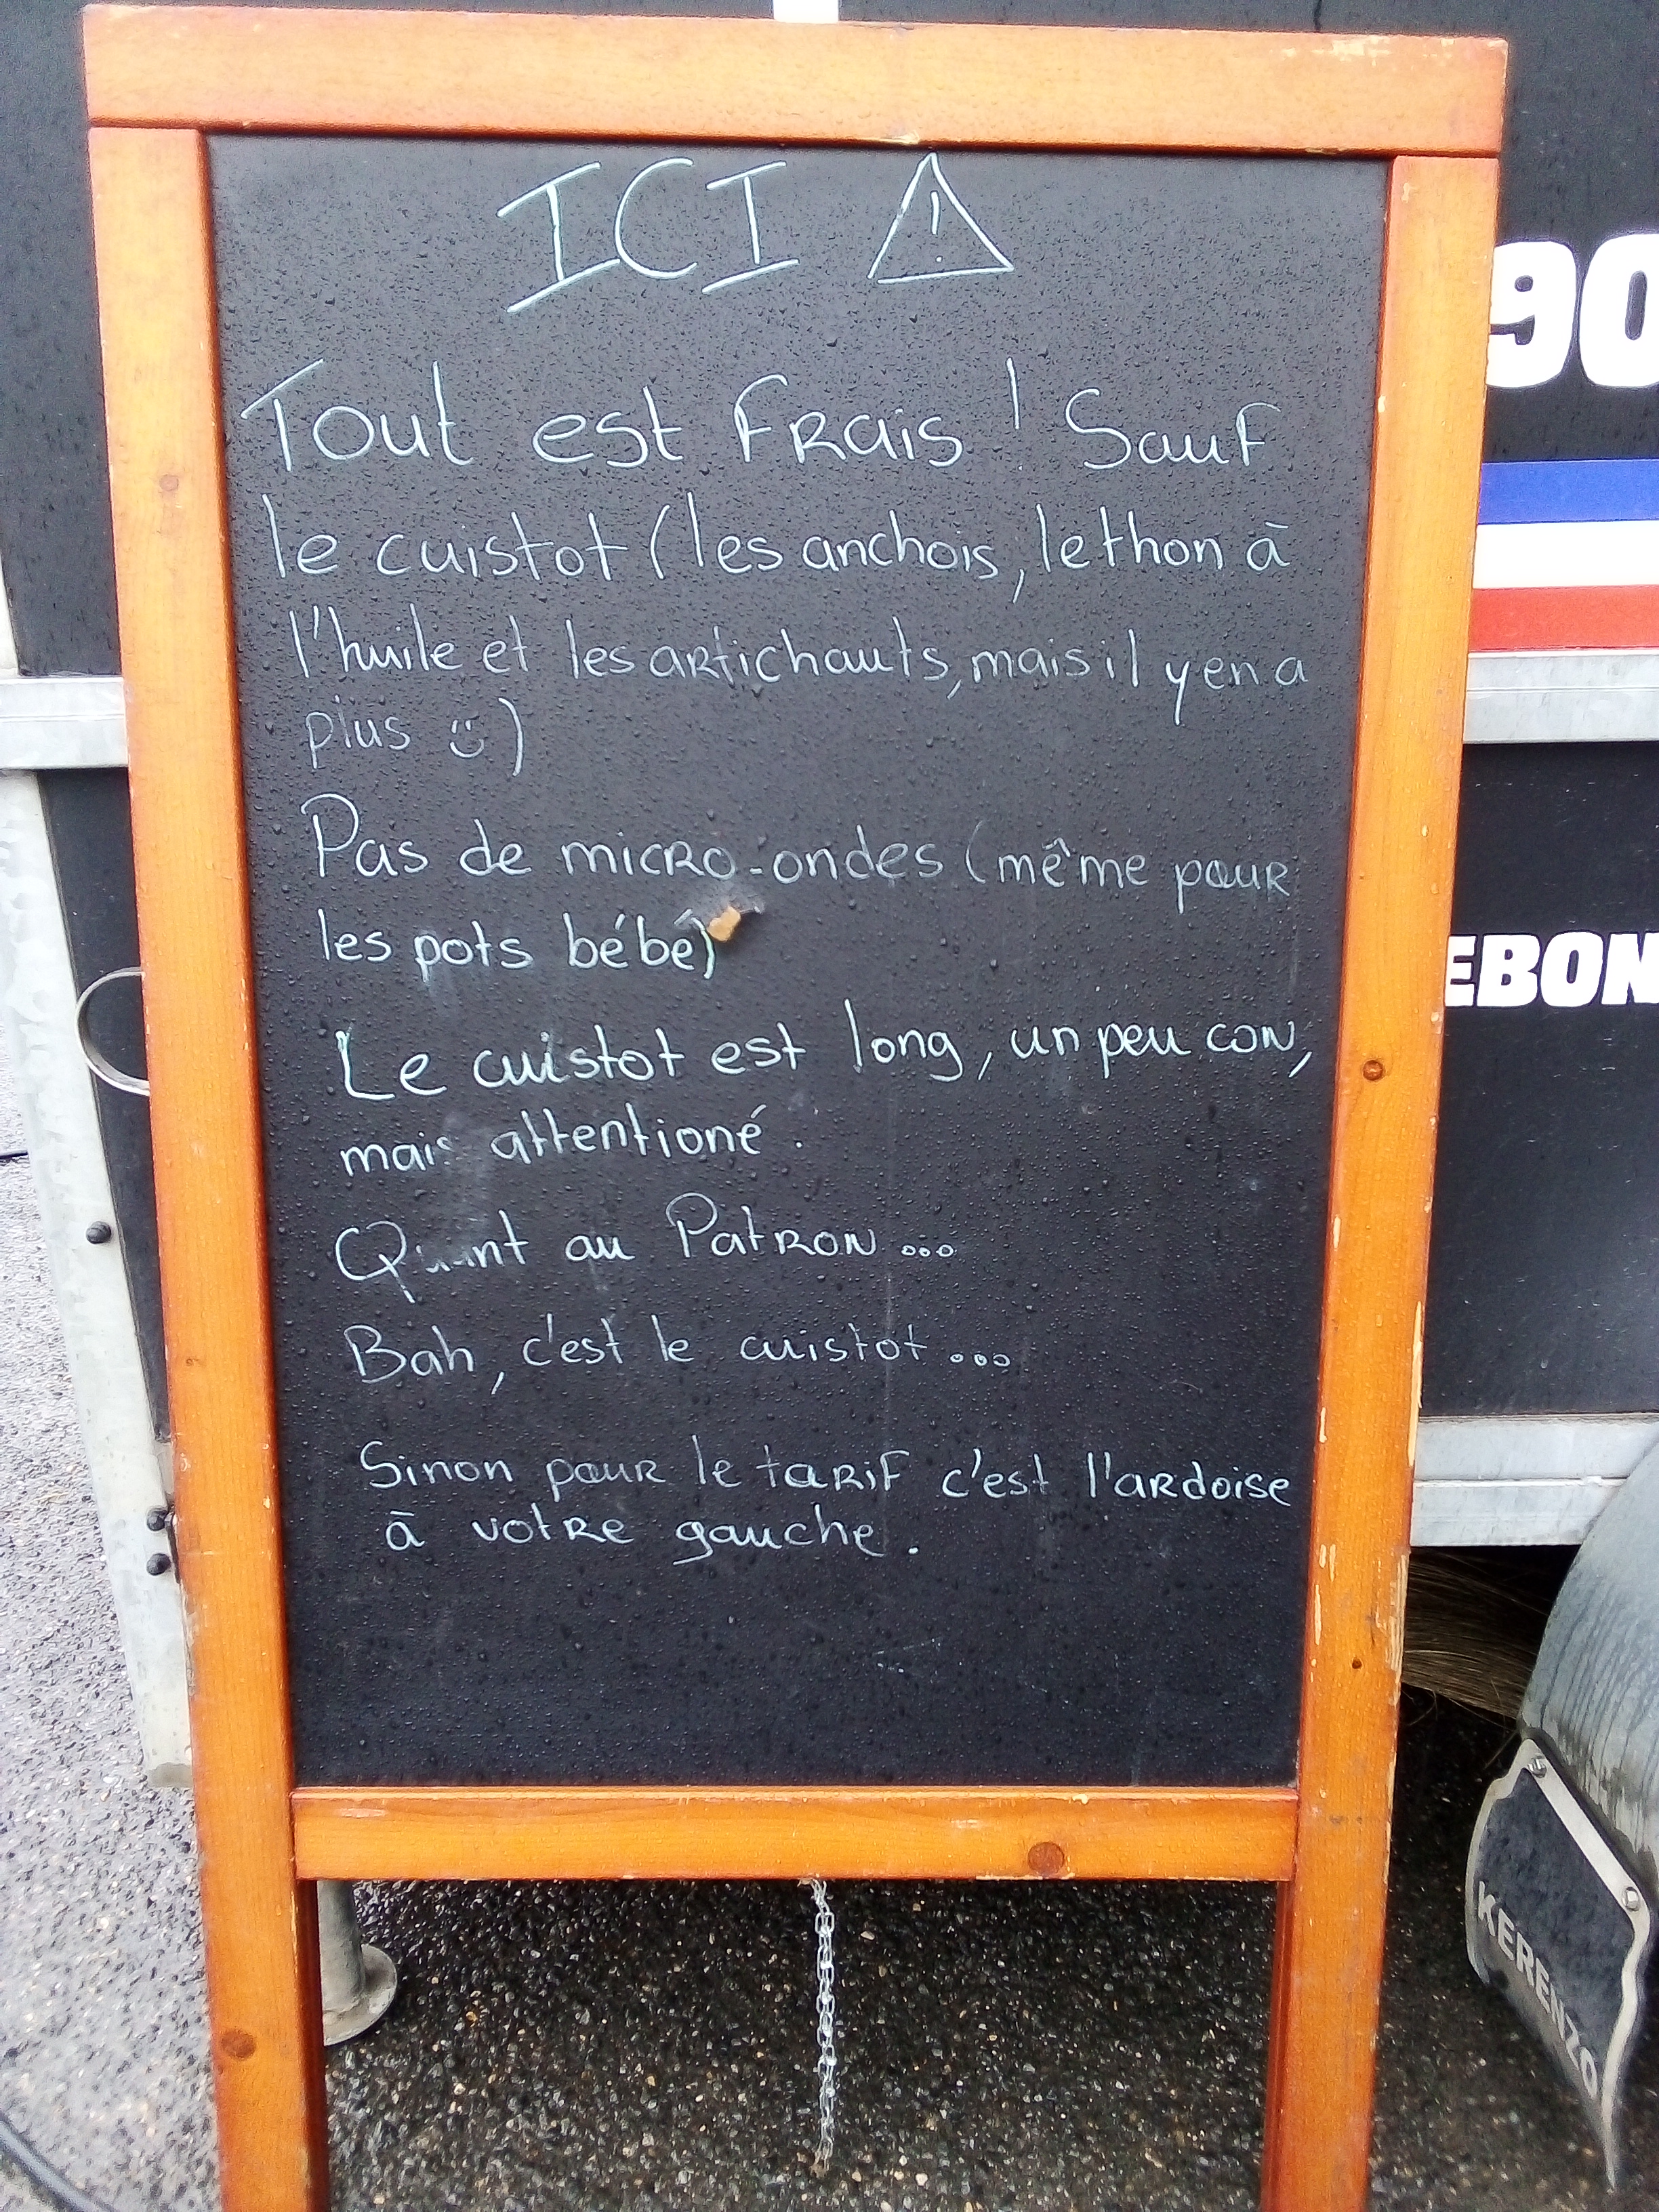 ICI ⚠
Tout est Frais ! Sauf
le cuistot (les anchois, le thon à
l'huile et les artichauts, mais il y en a
plus ☺)
Pas de micro-ondes (même pour
les pots bébé)
Le cuistot est long, un peu con,
mais attentioné.
Quant au Patron...
Bah, c'est le cuistot...
Sinon pour le tarif c'est l'ardoise
à votre gauche.
90
EBON
KERENZO